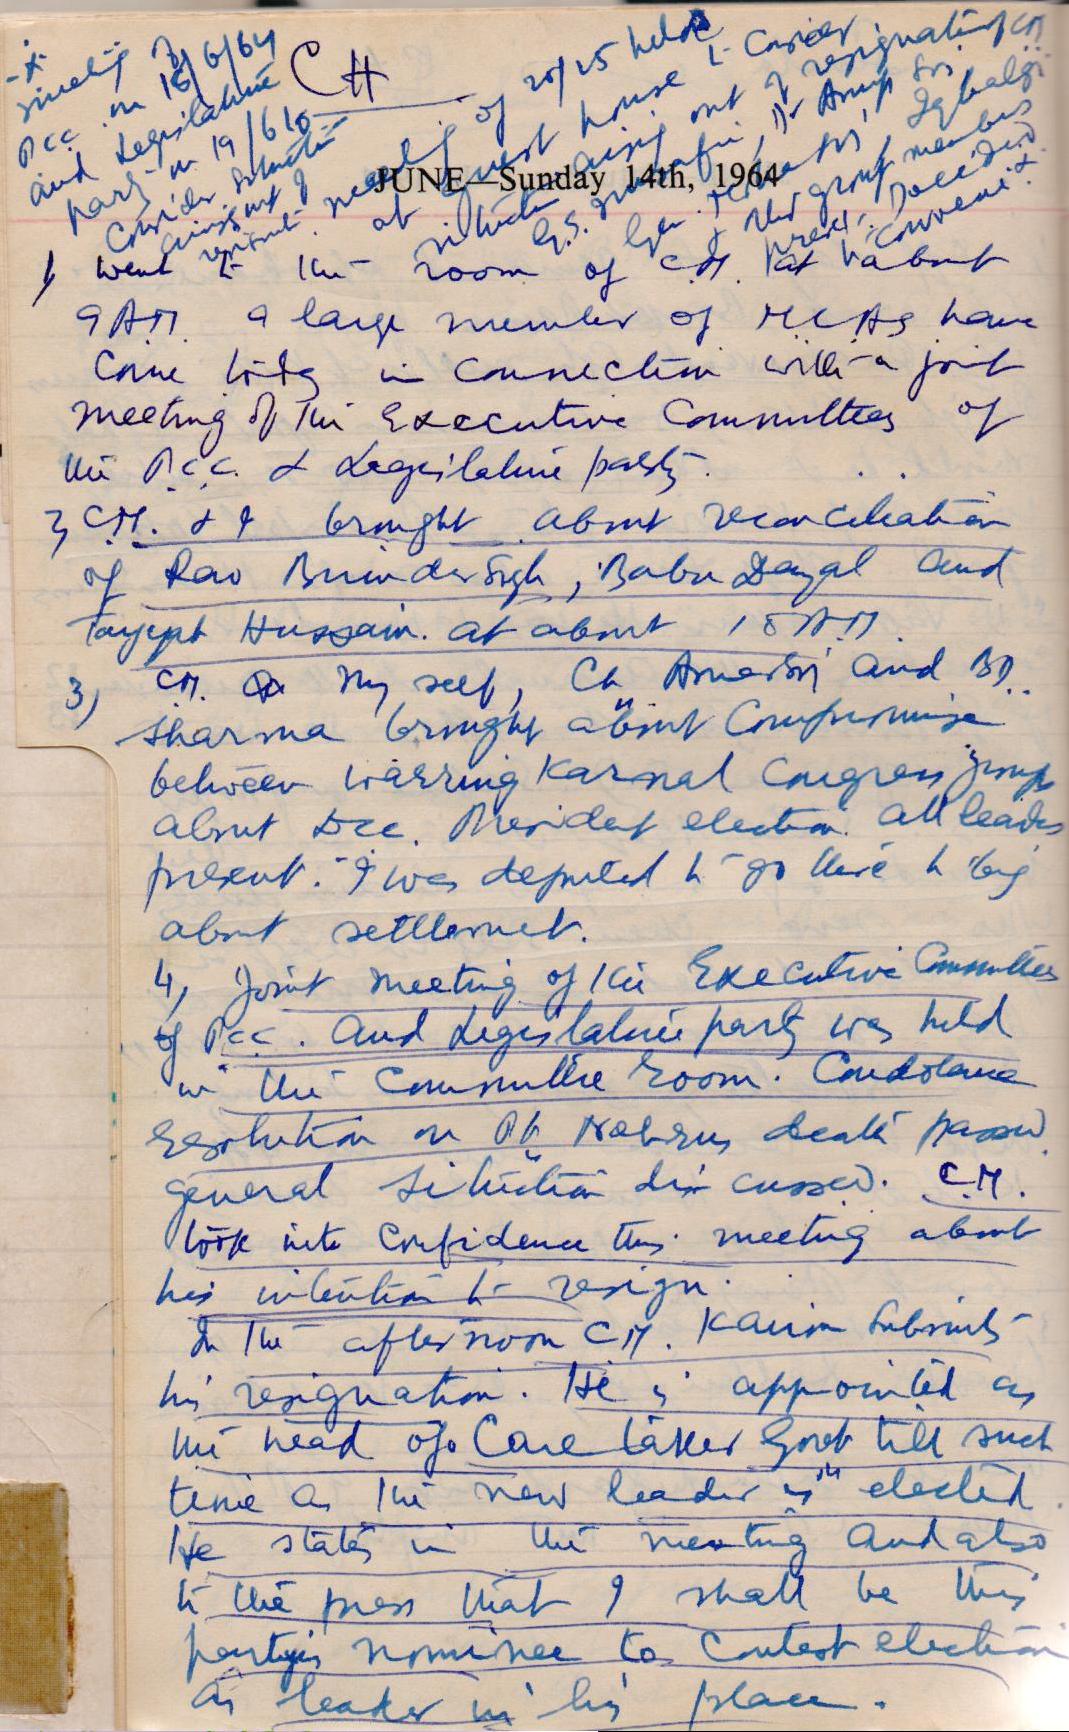 CH
meeting of
PCC on 18/6/64
and Legislature
party on 19/6 to
consider situation
arising out of
meeting of 20/25 held
at guest house to consider
situation arising out of resignation of CM
group members
present. Decided
JUNE—Sunday 14th, 1964
1) went to the room of C.M. at about
9 AM. a large member of MLAs have
come today in connection with a joint
meeting of the Executive Committees of
the P.C.C. & Legislature party.
2) C.M. & I brought about reconciliation
of Rao Birinder Singh, Babu Dayal and
Tayyept Hussain. at about 10 AM.
3) CM. Myself, Ch and BD.
Sharma brought about Compromise
between warring Karnal Congress groups
about Dcc. President election. All leaders
present. I was deputed to go there to bring
about settlement.
4) Joint meeting of the Executive Committees
of Pcc. and Legislature party was held
in the Committee Room. Condolance
resolution on Pt Nehrus death passed
general situation discussed. C.M.
took into confidence this meeting about
his intention to resign.
In the afternoon CM. Kairon Submits
his resignation. He is appointed as
the head of Care taker Govt till such
time as the new leader is elected.
He states in the meeting and also
to the press that I shall be the
party's nominee to contest election
as leader in his place.